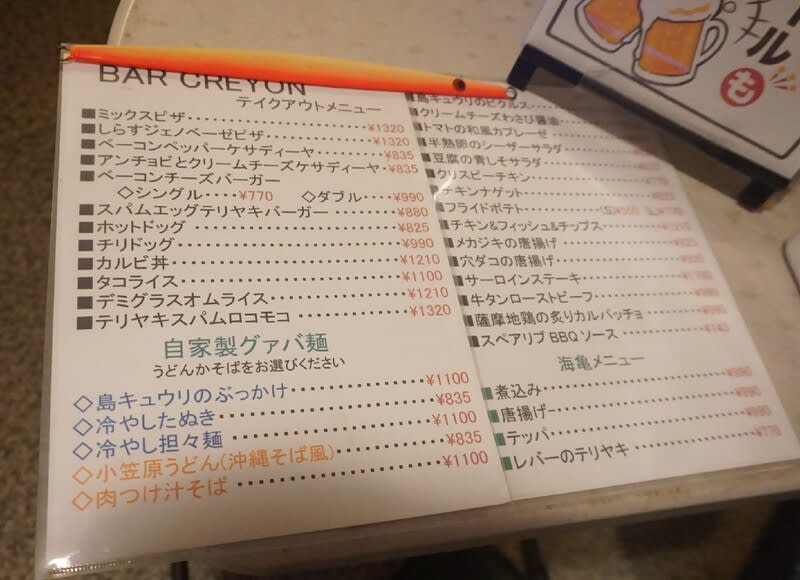 BAR CREYON
テイクアウトメニュー
■ミックスピザ ¥1320
■しらすジェノベーゼピザ ¥1320
■ベーコンペッパーケサディーヤ ¥835
■アンチョビとクリームチーズケサディーヤ ¥835
■ベーコンチーズバーガー
◇シングル ¥770 ◇ダブル ¥990
■スパムエッグテリヤキバーガー ¥880
■ホットドッグ ¥825
■チリドッグ ¥990
■カルビ丼 ¥1210
■タコライス ¥1100
■デミグラスオムライス ¥1210
■テリヤキスパムロコモコ ¥1320
自家製グァバ麺
うどんかそばをお選びください
◇島キュウリのぶっかけ ¥1100
◇冷やしたぬき ¥835
◇冷やし担々麺 ¥1100
◇小笠原うどん(沖縄そば風) ¥835
◇肉つけ汁そば ¥1100
■島キュウリのピクルス
■クリームチーズわさび醤油
■トマトの和風カプレーゼ
■半熟卵のシーザーサラダ
■豆腐の青しそサラダ
■クリスピーチキン
■チキンナゲット
■フライドポテト
■チキン&フィッシュ&チップス
■メカジキの唐揚げ
■穴ダコの唐揚げ
■サーロインステーキ
■牛タンローストビーフ
■薩摩地鶏の炙りカルパッチョ
■スペアリブBBQソース
海亀メニュー
■煮込み
■唐揚げ
■テッパ
■レバーのテリヤキ
ル
も